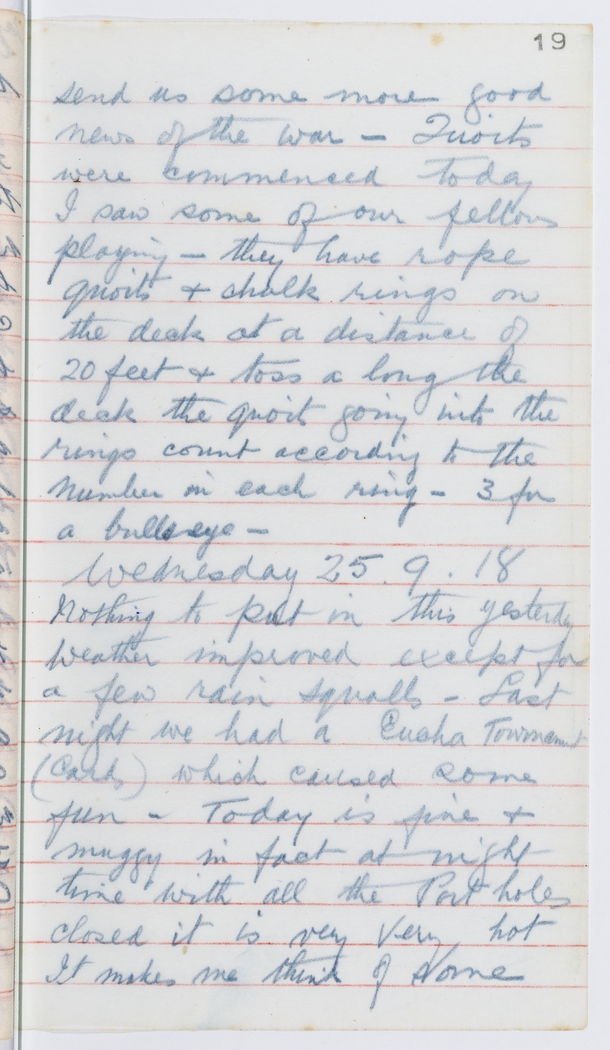 19
send us some more good
news of the war - Quoits
were commenced today
I saw some of our fellows
playing - they have rope
quoits & chalk rings on
the deck at a distance of
20 feet & toss a long the
deck the quoit going into the
rings count according to the
number in each ring - 3 for
a bullseye -
Wednesday 25.9.18
Nothing to put in this yesterday
Weather improved except for
a few rain squalls - Last
night we had a Eucha Tournament
(Cards) which caused some
fun - Today is fine &
muggy in fact at night
time with all the Port holes
closed it is very very hot
It makes me think of some